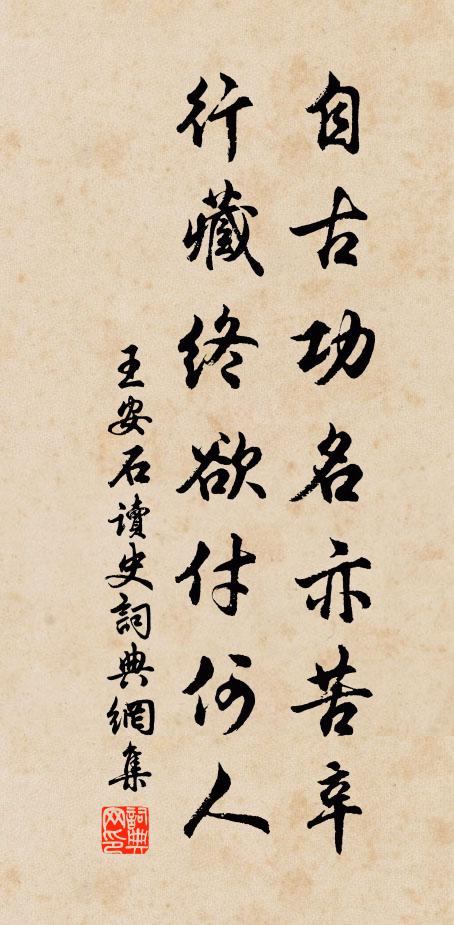 自古功名亦苦辛
行藏終欲付何人
王安石讀史詞典網集
詞典网印